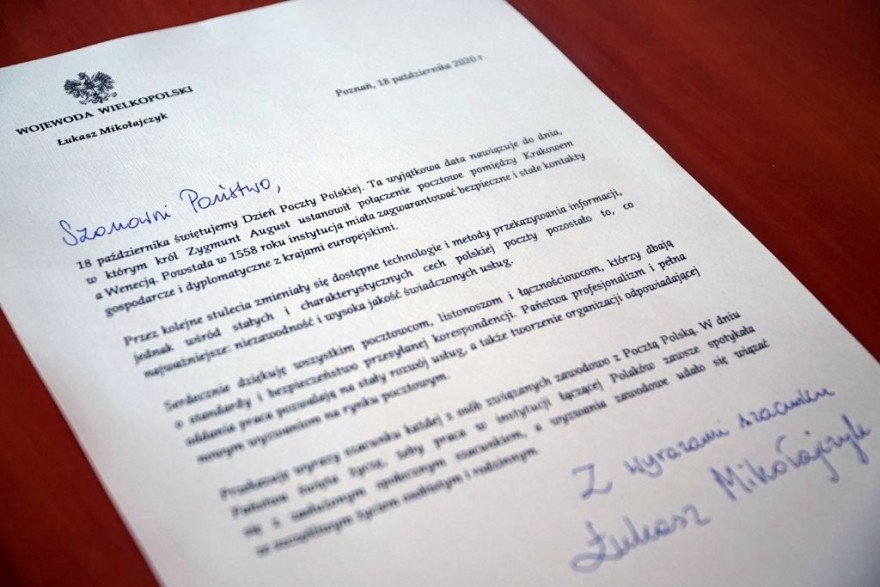 WOJEWODA WIELKOPOLSKI
Łukasz Mikołajczyk
Poznań, 18 października 2020 r.
Szanowni Państwo,
18 października świętujemy Dzień Poczty Polskiej. Ta wyjątkowa data nawiązuje do dnia,
w którym król Zygmunt August ustanowił połączenie pocztowe pomiędzy Krakowem
a Wenecją. Powstała w 1558 roku instytucja miała zagwarantować bezpieczne i stałe kontakty
gospodarcze i dyplomatyczne z krajami europejskimi.
Przez kolejne stulecia zmieniały się dostępne technologie i metody przekazywania informacji,
jednak wśród stałych i charakterystycznych cech polskiej poczty pozostało to, co
najważniejsze: niezawodność i wysoka jakość świadczonych usług.
Serdecznie dziękuję wszystkim pocztowcom, listonoszom i łącznościowcom, którzy dbają
o standardy i bezpieczeństwo przesyłanej korespondencji. Państwa profesjonalizm i pełna
oddania praca pozwalają na stały rozwój usług, a także tworzenie organizacji odpowiadającej
nowym wyzwaniom na rynku pocztowym.
Przekazuję wyrazy szacunku każdej z osób związanych zawodowo z Pocztą Polską. W dniu
Państwa święta życzę, żeby praca w instytucji łączącej Polaków zawsze spotykała
się z zasłużonym społecznym szacunkiem, a wyzwania zawodowe udało się wiązać
ze szczęśliwym życiem osobistym i rodzinnym.
Z wyrazami szacunku
Łukasz Mikołajczyk